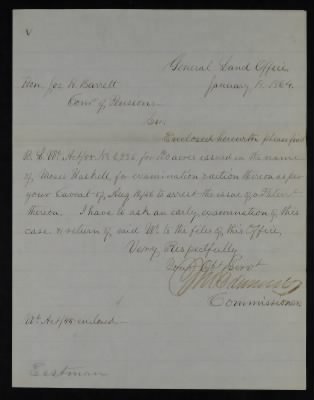 General Land Office
January 12, 1864.
Hon. Jos H. Barrett
Comr of Pensions
Sir
Enclosed herewith please find
B. L. Wt. Act/55 No 6,936 for acres issued in the name
of Moses Haskell for examination & action thereon as per
your Caveat of Aug to arrest the issue of a Patent
thereon. I have to ask an early examination of this
case & return of said Wt. to the files of this Office,
Very Respectfully
Your Obt Servt
Commissioner
Wt Act/55 enclosed
Eastman